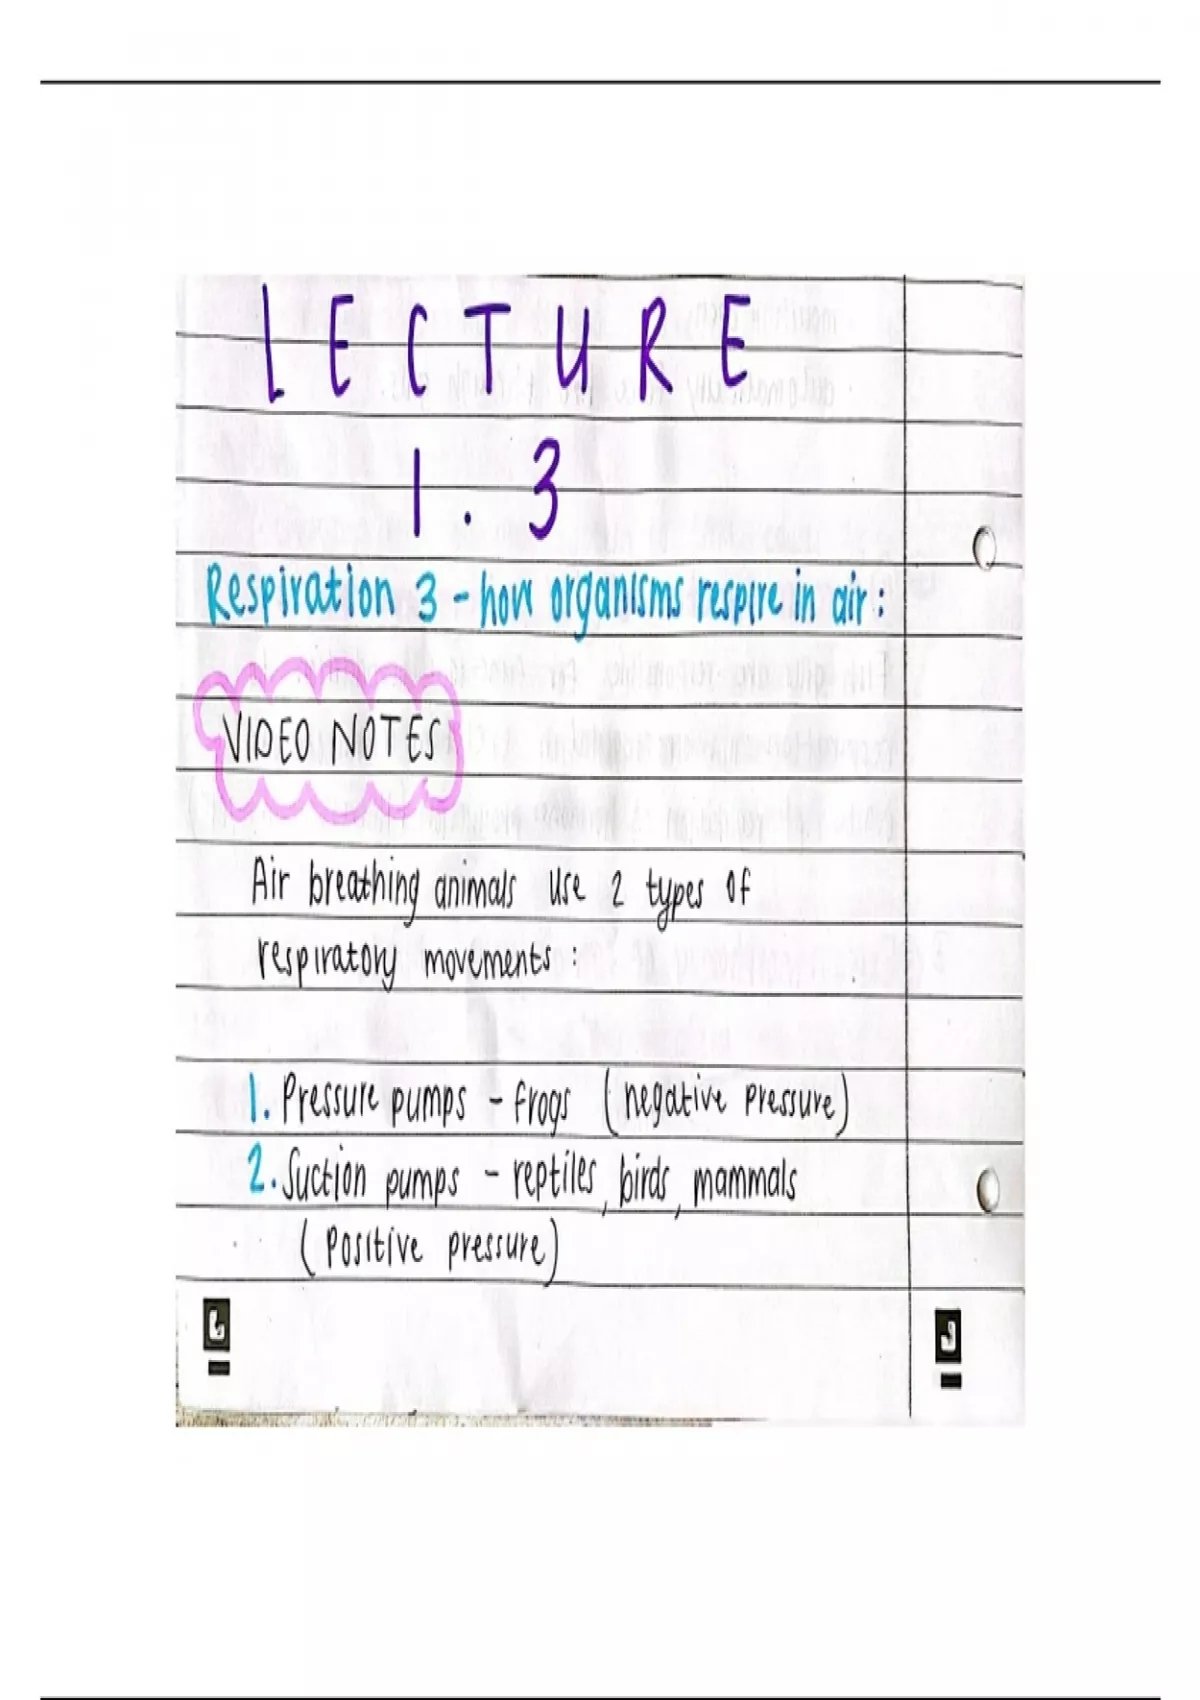 LECTURE
1.3
Respiration 3 - how organisms respire in air:
VIDEO NOTES
Air breathing animals use 2 types of
respiratory movements:
1. Pressure pumps - frogs (negative pressure)
2. Suction pumps - reptiles, birds, mammals
(positive pressure)